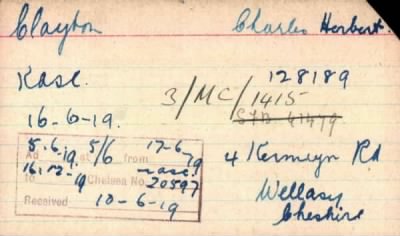 Clayton Charles Herbert.
RASC. 128189
3/MC/1415
16-6-19.
8.6.19. 5/6 17-6-19
Ad at from
16.12.19 RASC.
to Chelsea No. 20597
Received 10-6-19
4 Kermeyn Rd
Wellasy
Cheshire